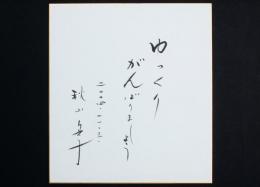 ゆっくり
がんばりましょう
二〇〇四・一・三・
秋山